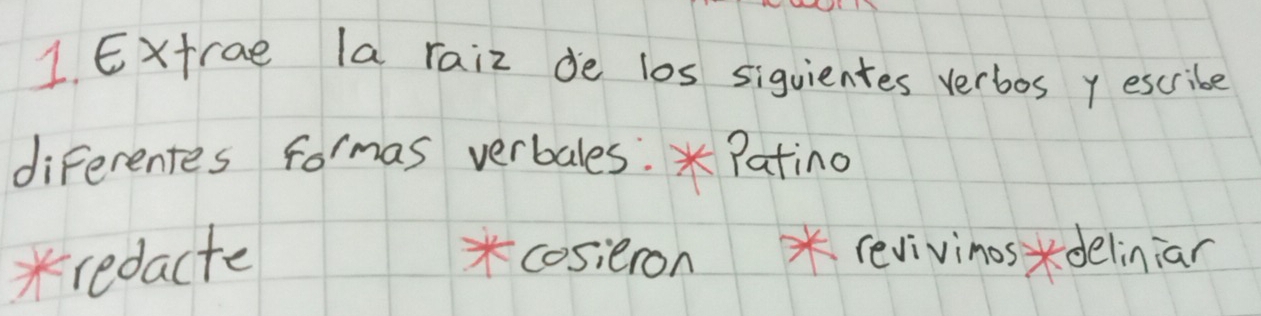 1. Extrae la raiz de los siguientes verbos y escribe
diferentes formas verbales: * Patino
* redacte * cosieron * revivimos * deliniar